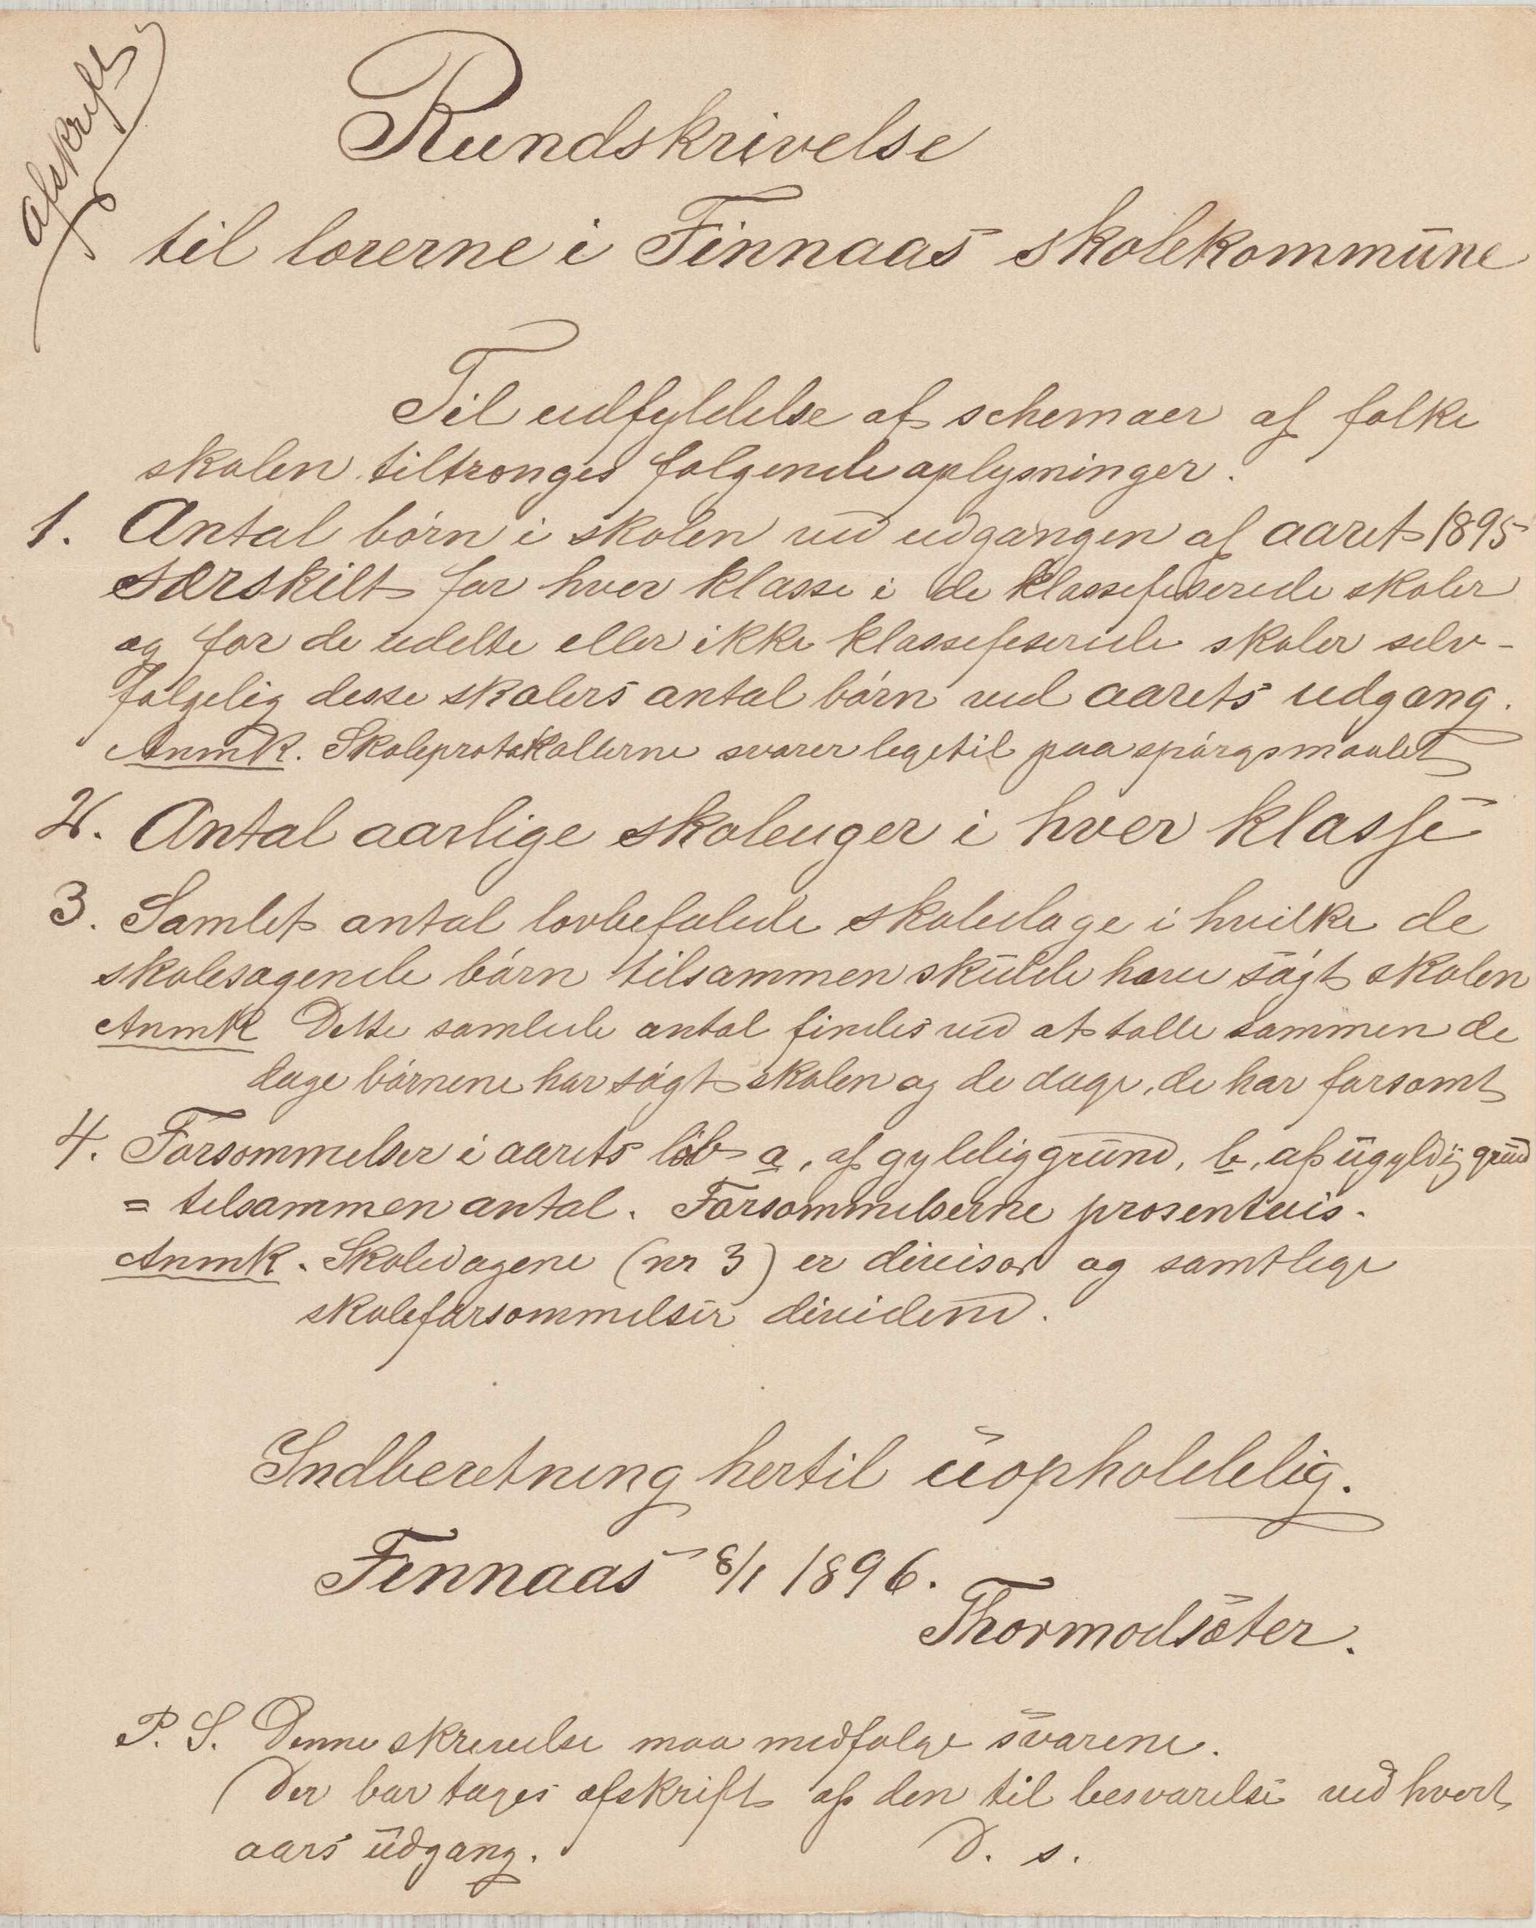 Afskrift
Rundskrivelse
til lærerne i Finnaas skolekommune
Til udfyldelse af schemaer af folke
skolen tiltrænges følgende oplysninger.
1. Antal børn i skolen ved udgangen af aaret 1895
særskilt for hver klasse i de klassefiserede skoler
og for de udelte eller ikke klassefeserede skoler selv-
følgelig desse skolers antal børn ved aarets udgang.
Anmk. Skoleprotokollerne svarer legetil paa spørgsmaalet
2. Antal aarlige skoleuger i hver klasse
3. Samlet antal lovbefalede skoledage i hvilke de
skolesøgende børn tilsammen skulde have søgt skolen
Anmk Dette samlede antal findes ved at tælle sammen de
dage børnene har søgt skolen og de dage, de har forsømt
4. Forsømmelser i aarets løb a, af gyldig grund, b, af ugyldig grund
= tilsammen antal. Forsømmelserne prosentvis.
Anmk. Skoledagene (nr 3) er divisor og samtlege
skoleforsømmelser dividend.
Indberetning hertil uopholdelig.
Finnaas 8/1 1896.
Thormodsæter.
P. S. Denne skrivelse maa medfølge svarene.
Der bør tages afskrift af den til besvarelse ved hvert
aars udgang. D. s.